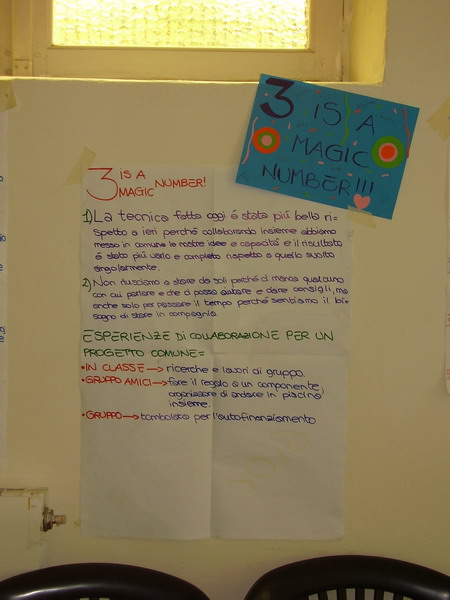 3 IS A
MAGIC
NUMBER!!!
3 IS A
MAGIC NUMBER!
1) La tecnica fatta oggi é stata piú bella ri-
spetto a ieri perché collaborando insieme abbiamo
messo in comune le nostre idee e capacitá e il risultato
é stato piú vario e completo rispetto a quello svolto
singolarmente.
2) Non riusciamo a stare da soli perché ci manca qualcuno
con cui parlare e che ci possa aiutare e dare consigli, ma
anche solo per passare il tempo perché sentiamo il bi-
sogno di stare in compagnia.
ESPERIENZE DI COLLABORAZIONE PER UN
PROGETTO COMUNE=
• IN CLASSE → ricerche e lavori di gruppo.
• GRUPPO AMICI → fare il regalo a un componente,
organizzare di andare in piscina
insieme.
• GRUPPO → tombolata per l'autofinanziamento